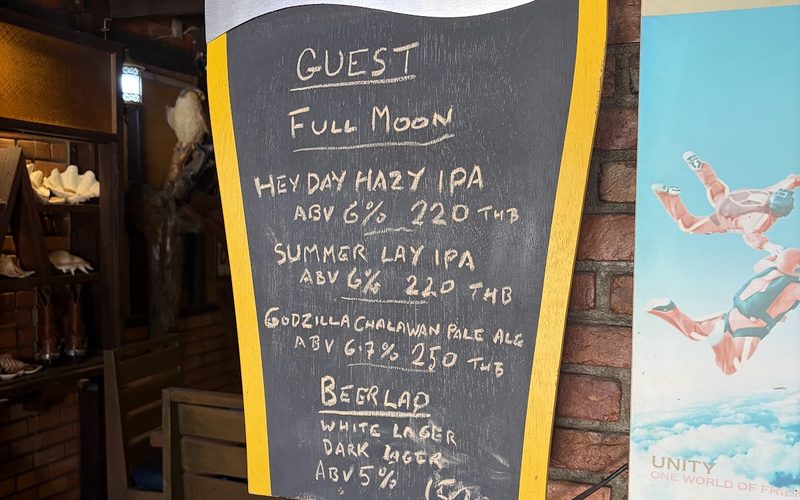 GUEST
FULL MOON
HEY DAY HAZY IPA
ABV 6% 220 THB
SUMMER LAY IPA
ABV 6% 220 THB
GODZILLA CHALAWAN PALE ALE
ABV 6.7% 250 THB
BEERLAO
WHITE LAGER
DARK LAGER
ABV 5%
UNITY
ONE WORLD OF